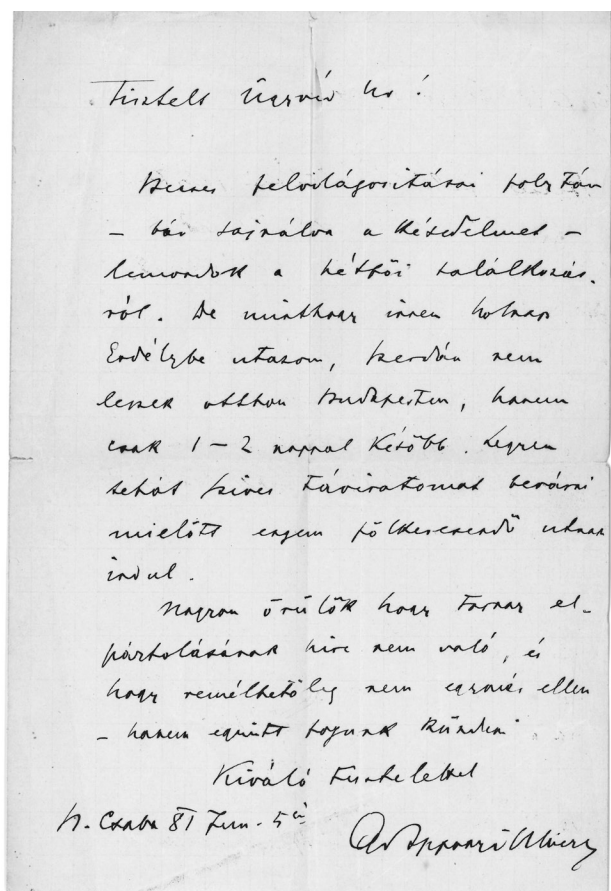 Tisztelt Ügyvéd Ur!
Becses felvilágositásai folytán
– bár sajnálva a késedelmet –
lemondok a hétfői találkozás-
ról. De minthogy innen holnap
Erdélybe utazom, szerdán nem
leszek otthon Budapesten, hanem
csak 1–2 nappal később. Legyen
tehát szives táviratomat bevárni
mielőtt engem fölkeresendő utnak
indul.
Nagyon örülök hogy Farnay el-
pártolásának hire nem való, és
hogy remélhetőleg nem egymás ellen
– hanem együtt fogunk küzdeni
Kiváló tisztelettel
Csaba 81 Jun. 5én
Apponyi Albert